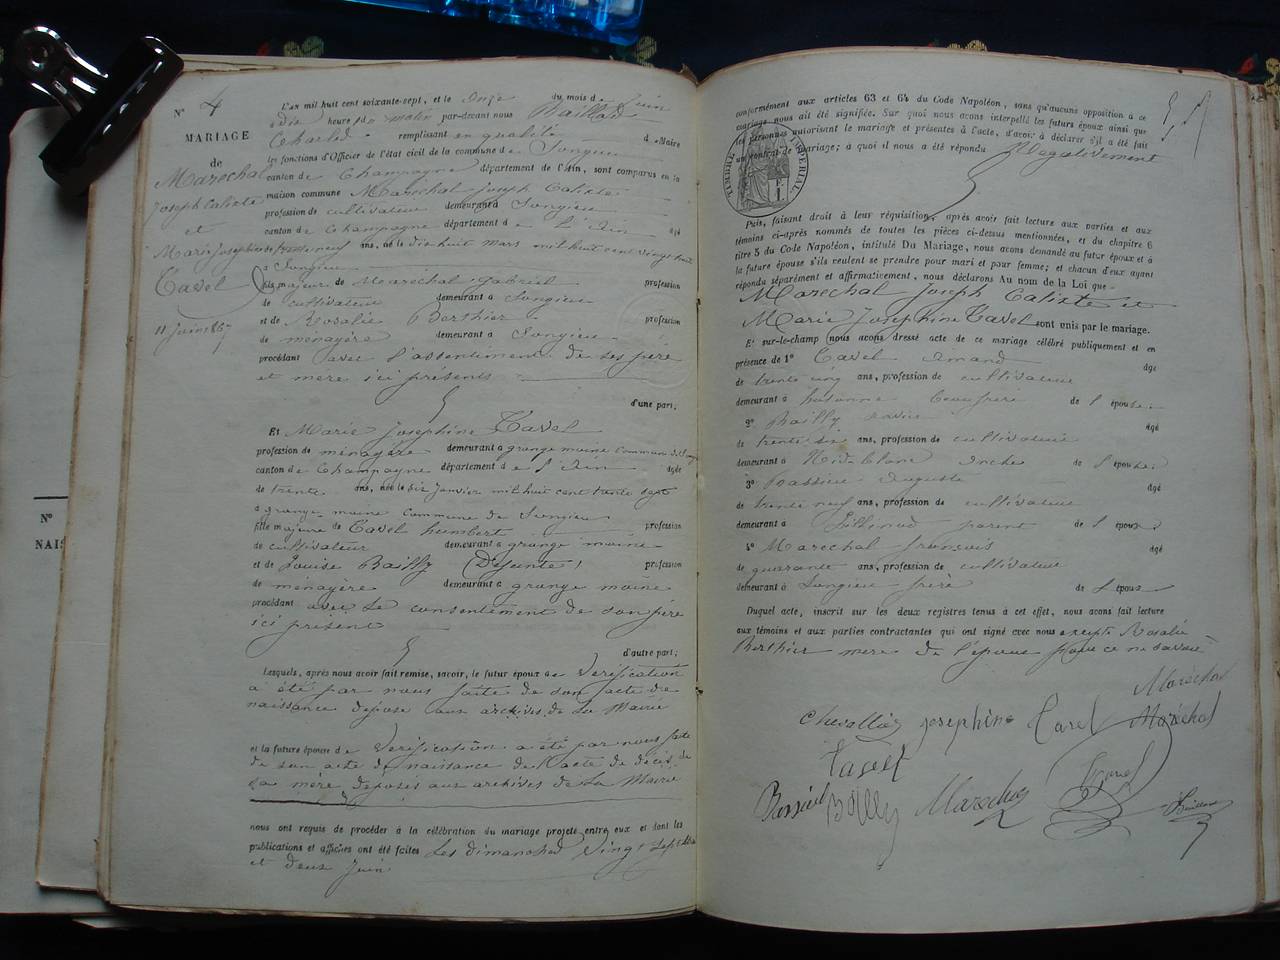 N° 4
MARIAGE
de
Maréchal
Joseph Caliste
et
Marie Josephine
Tavel
11 Juin 1867
L'an mil huit cent soixante-sept, et le onze du mois de Juin
dix heure du matin par-devant nous Baillod
Charles remplissant en qualité de Maire
les fonctions d'Officier de l'état civil de la commune de Songieu
canton de Champagne département de l'Ain, sont comparus en la
maison commune Maréchal Joseph Caliste
profession de cultivateur demeurant à Songieu
canton de Champagne département de L'Ain âgé
de trente neuf ans, né le dix huit mars mil huit cent vingt huit
à Songieu
fils majeur de Maréchal Gabriel profession
de cultivateur demeurant à Songieu
et de Rosalie Berthier profession
de ménagère demeurant à Songieu
procédant avec l'assentiment de ses père
et mère ici présents
d'une part;
Et Marie Josephine Tavel
profession de ménagère demeurant à grange moine commune de
canton de Champagne département de l'Ain âgée
de trente ans, née le six Janvier mil huit cent trente sept
à grange moine commune de Songieu
fille majeure de Tavel humbert profession
de cultivateur demeurant à grange moine
et de Louise Bailly (Défunte) profession
de ménagère demeurant à grange moine
procédant avec le consentement de son père
ici présent
d'autre part;
Lesquels, après nous avoir fait remise, savoir, le futur époux de Vérification
a été par nous faite de son acte de
naissance déposé aux archives de la Mairie
et la future épouse de Vérification a été par nous faite
de son acte de naissance de l'acte de décès de
sa mère déposés aux archives de la Mairie
nous ont requis de procéder à la célébration du mariage projeté entre eux et dont les
publications et affiches ont été faites les dimanches vingt six Mai
et deux Juin
conformément aux articles 63 et 64 du Code Napoléon, sans qu'aucune opposition à ce
mariage nous ait été signifiée. Sur quoi nous avons interpellé les futurs époux ainsi que
les personnes autorisant le mariage et présentes à l'acte, d'avoir à déclarer s'il a été fait
un contrat de mariage; à quoi il nous a été répondu Négativement
TIMBRE IMPÉRIAL
Puis, faisant droit à leur réquisition, après avoir fait lecture aux parties et aux
témoins ci-après nommés de toutes les pièces ci-dessus mentionnées, et du chapitre 6
titre 5 du Code Napoléon, intitulé Du Mariage, nous avons demandé au futur époux et à
la future épouse s'ils veulent se prendre pour mari et pour femme; et chacun d'eux ayant
répondu séparément et affirmativement, nous déclarons Au nom de la Loi que
Maréchal Joseph Caliste et
Marie Josephine Tavel sont unis par le mariage.
Et sur-le-champ nous avons dressé acte de ce mariage célébré publiquement et en
présence de 1° Tavel Amand âgé
de trente cinq ans, profession de cultivateur
demeurant à beaufrère de l'épouse.
2° Bailly âgé
de trente six ans, profession de cultivateur
demeurant à Nid-blanc oncle de l'épouse.
3° Bassieu Auguste âgé
de trente neuf ans, profession de cultivateur
demeurant à parent de l'époux
4° Maréchal françois âgé
de quarante ans, profession de cultivateur
demeurant à Songieu frère de l'époux
Duquel acte, inscrit sur les deux registres tenus à cet effet, nous avons fait lecture
aux témoins et aux parties contractantes qui ont signé avec nous excepté Rosalie
Berthier mère de l'époux pour ce ne savoir
Maréchal
josephine Tavel Maréchal
Tavel
Bassieu Bailly Maréchal
N°
NAIS